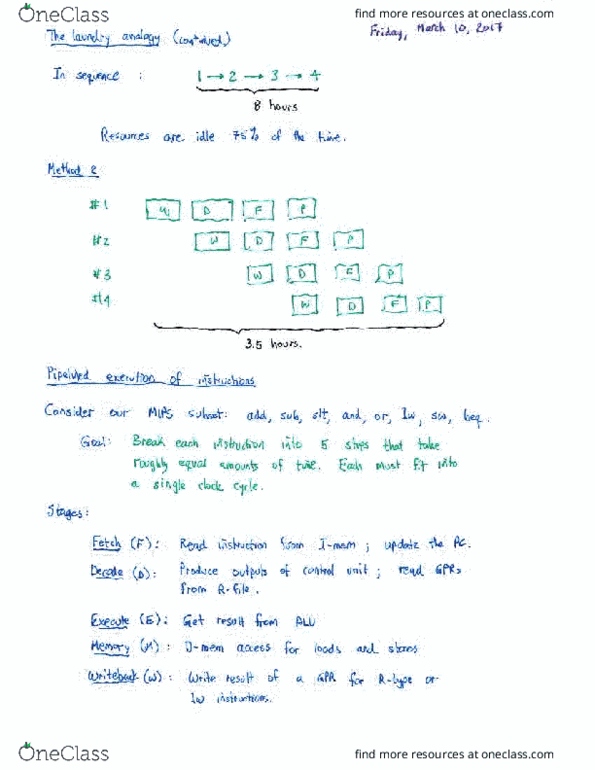 OneClass
find more resources at oneclass.com
The laundry analogy (continued)
Friday, March 10, 2017
In sequence : 1 → 2 → 3 → 4
8 hours
Resources are idle 75% of the time.
Method 2
#1 W D F P
#2 W D F P
#3 W D F P
#4 W D F P
3.5 hours.
Pipelined execution of instructions
Consider our MIPS subset: add, sub, slt, and, or, lw, sw, beq.
Goal: Break each instruction into 5 steps that take
roughly equal amounts of time. Each must fit into
a single clock cycle.
Stages:
Fetch (F): Read instruction from I-mem ; update the PC.
Decode (D): Produce outputs of control unit ; read GPRs
from R-file.
Execute (E): Get result from ALU
Memory (M): D-mem access for loads and stores
Writeback (W): Write result of a GPR for R-type or
lw instructions.
OneClass
find more resources at oneclass.com